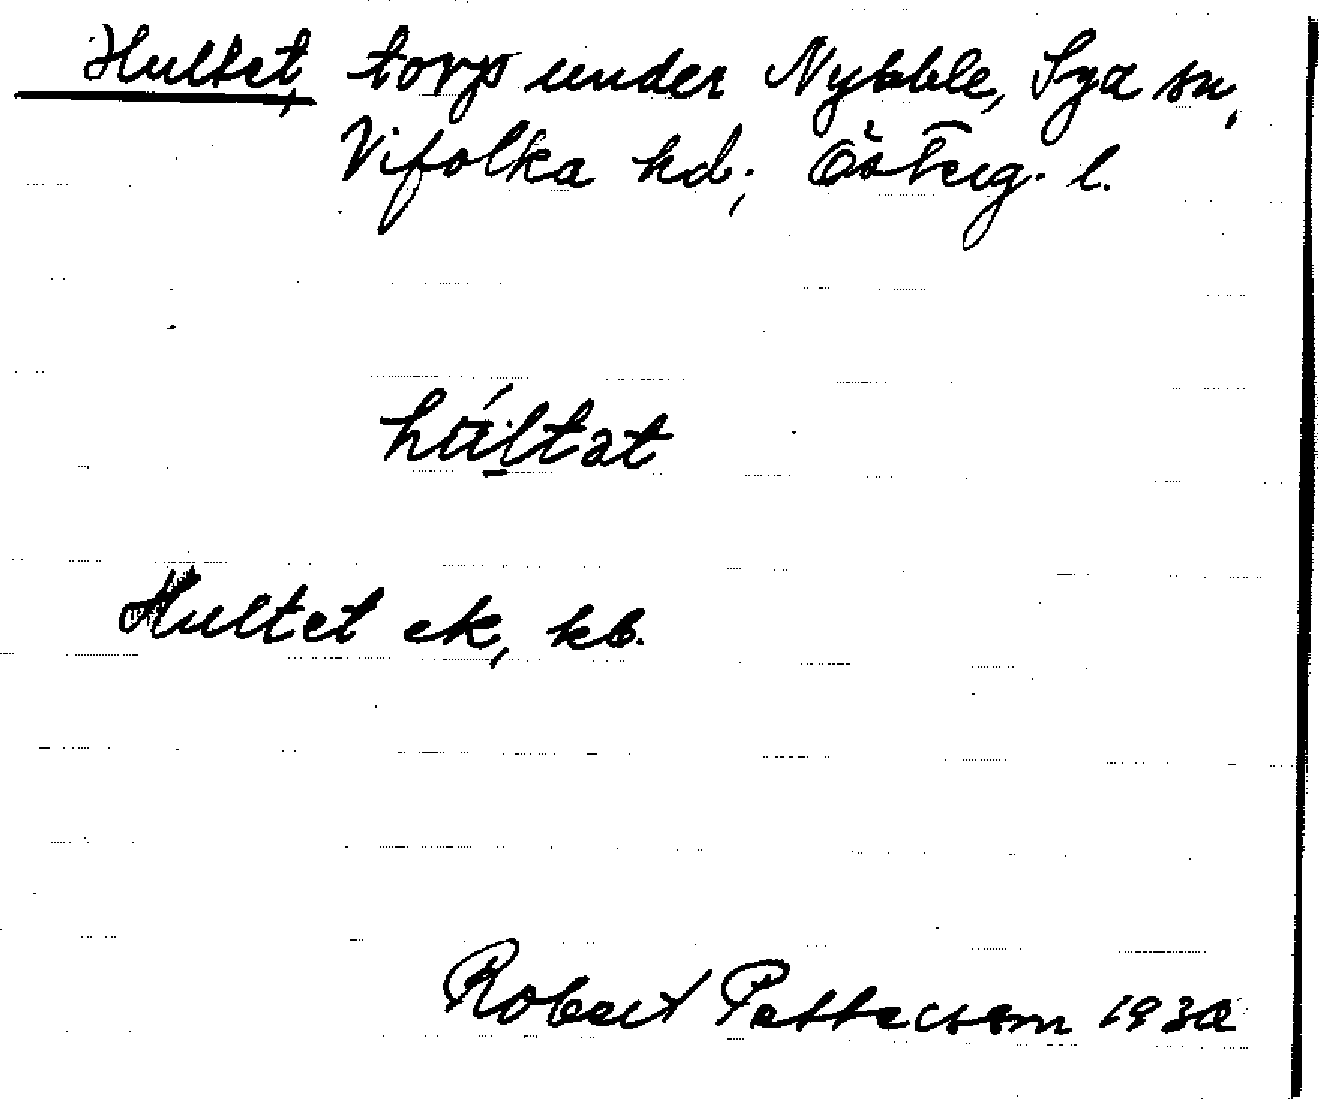 Hultet, torp under Nybble, Sya sn,
Vifolka hd; Österg. l.
húltat
Hultet ek, kb.
Robert Pettersson 1930